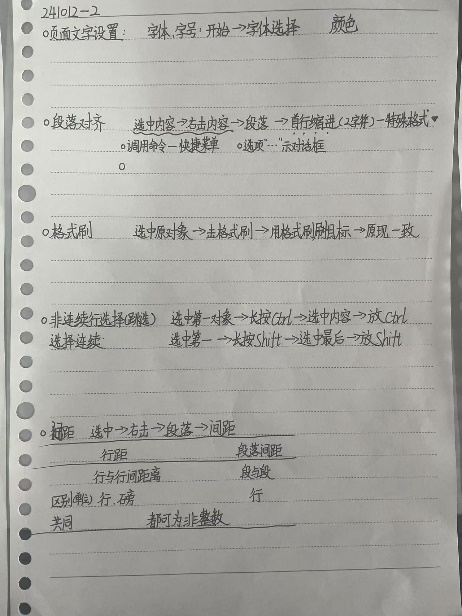 241012-2
○页面文字设置: 字体,字号:开始→字体选择 颜色
○段落对齐 选中内容→右击内容→段落→首行缩进(2字符)—特殊格式♥
○调用命令—快捷菜单 ○选项"…"示对话框
○
○格式刷 选中原对象→击格式刷→用格式刷刷目标→原现一致
○非连续行选择(跳选) 选中第一对象→长按Ctrl→选中内容→放Ctrl
选择连续 选中第一→长按Shift→选中最后→放Shift
○间距 选中→右击→段落→间距
行距 段落间距
行与行间距离 段与段
区别(单位) 行.磅 行
共同 都可为非整数